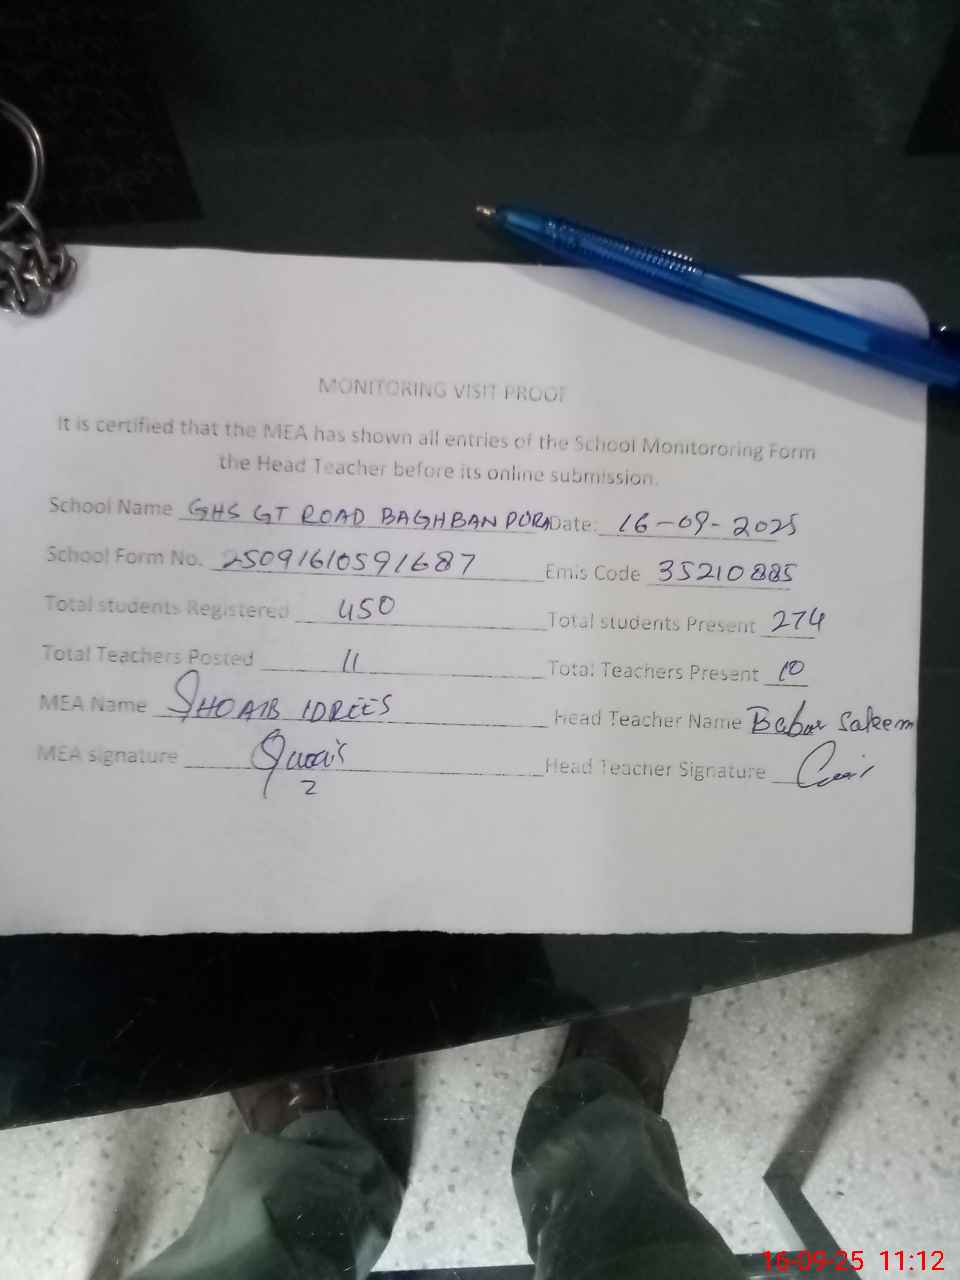 MONITORING VISIT PROOF
It is certified that the MEA has shown all entries of the School Monitororing Form
the Head Teacher before its online submission.
School Name GHS GT ROAD BAGHBANPURA Date: 16-09-2025
School Form No. 25091610591687 Emis Code 35210885
Total students Registered 450 Total students Present 274
Total Teachers Posted 11 Total Teachers Present 10
MEA Name SHOAIB IDREES Head Teacher Name Babar Saleem
MEA signature Head Teacher Signature
16-09-25 11:12